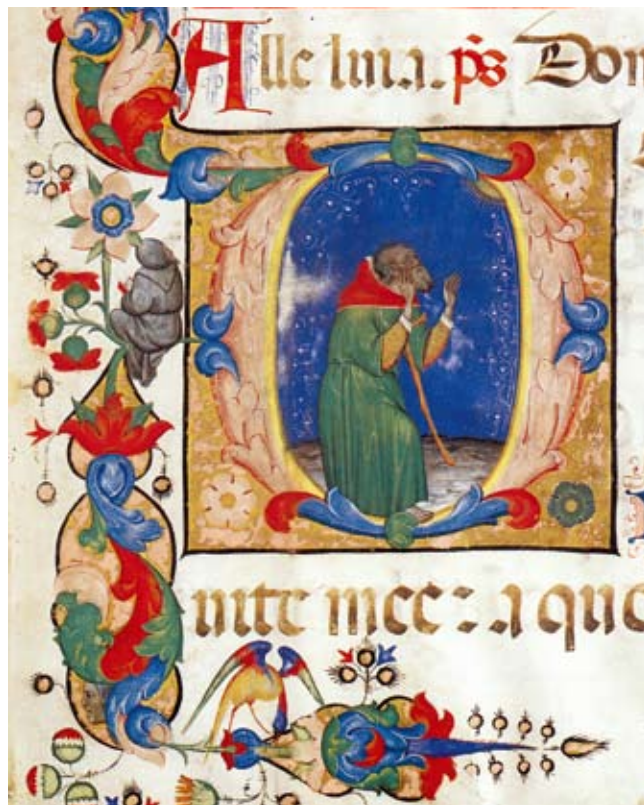 Alleluia. p̄s Dom
uite mee : a quo